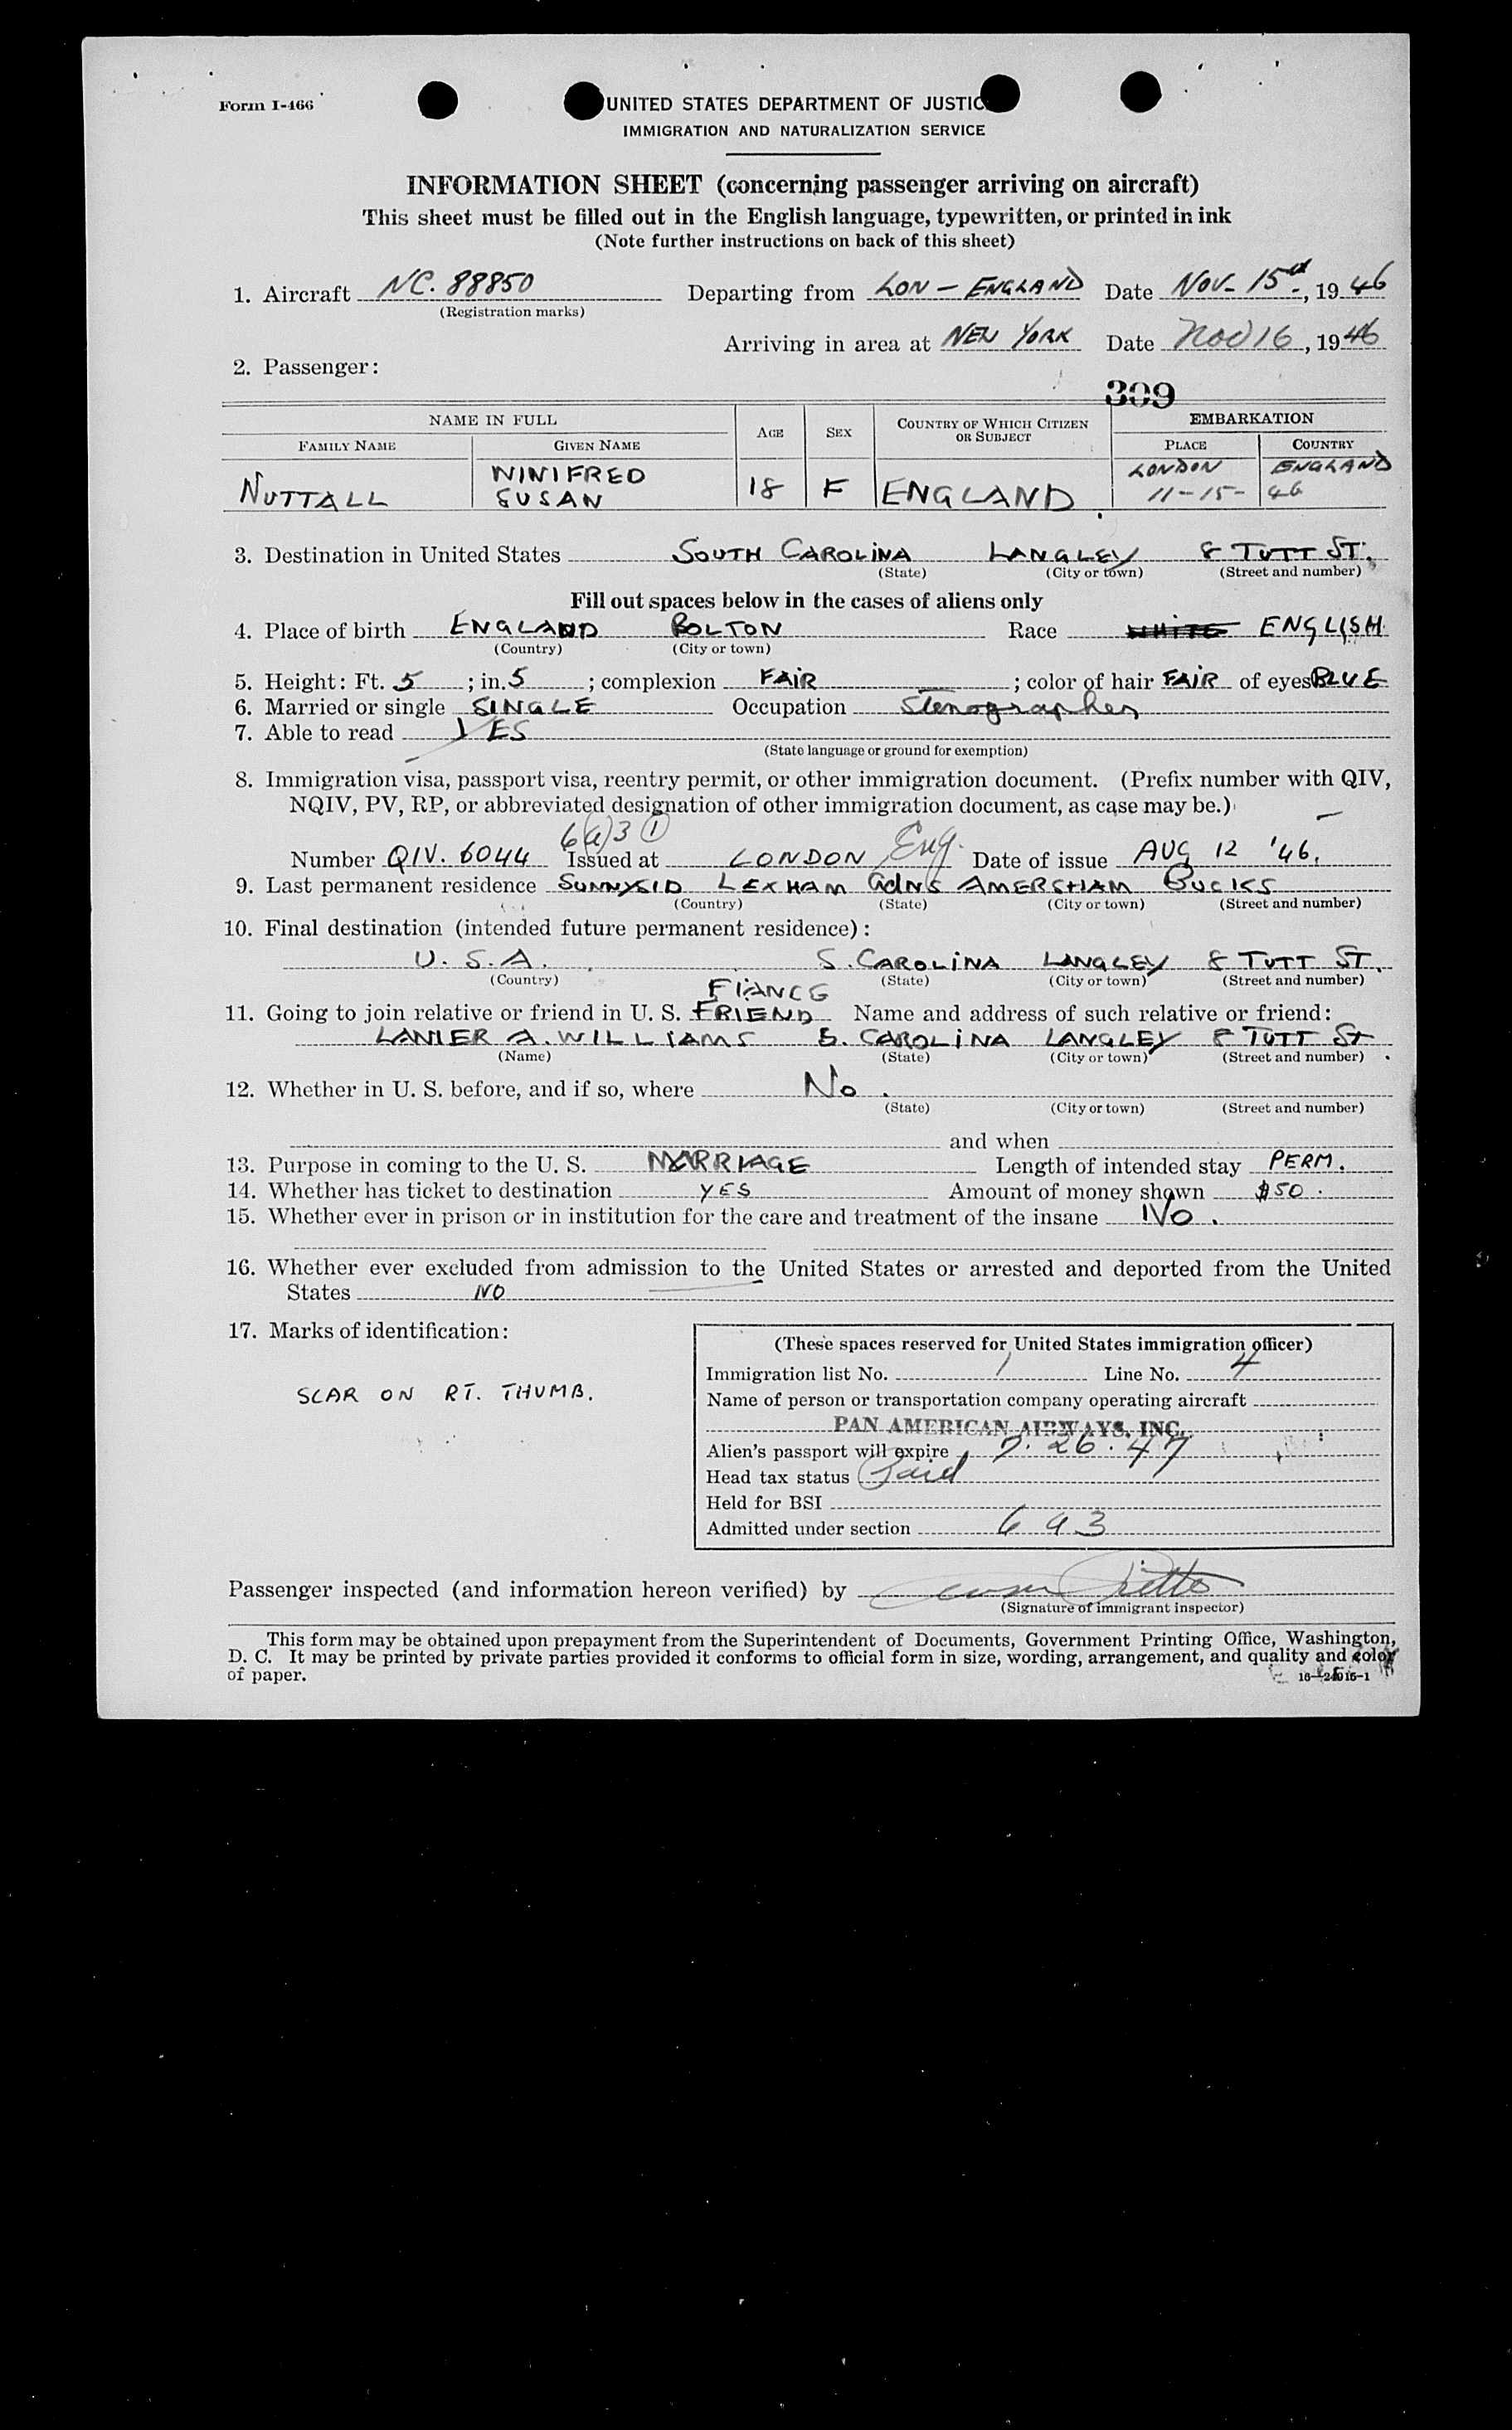 Form I-466
UNITED STATES DEPARTMENT OF JUSTIC
IMMIGRATION AND NATURALIZATION SERVICE
INFORMATION SHEET (concerning passenger arriving on aircraft)
This sheet must be filled out in the English language, typewritten, or printed in ink
(Note further instructions on back of this sheet)
1. Aircraft NC. 88850 Departing from LON – ENGLAND Date NOV- 15, 1946
(Registration marks)
Arriving in area at NEW YORK Date Nov 16, 1946
2. Passenger:
309
NAME IN FULL AGE SEX COUNTRY OF WHICH CITIZEN OR SUBJECT EMBARKATION
FAMILY NAME GIVEN NAME PLACE COUNTRY
NUTTALL WINIFRED SUSAN 18 F ENGLAND LONDON ENGLAND
11-15-46
3. Destination in United States SOUTH CAROLINA LANGLEY 8 TUTT ST.
(State) (City or town) (Street and number)
Fill out spaces below in the cases of aliens only
4. Place of birth ENGLAND BOLTON Race WHITE ENGLISH
(Country) (City or town)
5. Height: Ft. 5; in. 5; complexion FAIR; color of hair FAIR of eyes BLUE
6. Married or single SINGLE Occupation Stenographer
7. Able to read YES
(State language or ground for exemption)
8. Immigration visa, passport visa, reentry permit, or other immigration document. (Prefix number with QIV,
NQIV, PV, RP, or abbreviated designation of other immigration document, as case may be.)
6(a)3 1
Number QIV. 6044 Issued at LONDON Eng. Date of issue AUG 12 '46.
9. Last permanent residence SUNNYSID LEXHAM GDNS AMERSHAM BUCKS
(Country) (State) (City or town) (Street and number)
10. Final destination (intended future permanent residence):
U. S. A. S. CAROLINA LANGLEY 8 TUTT ST.
(Country) (State) (City or town) (Street and number)
FIANCE
11. Going to join relative or friend in U. S. FRIEND Name and address of such relative or friend:
LANIER A. WILLIAMS S. CAROLINA LANGLEY 8 TUTT ST.
(Name) (State) (City or town) (Street and number)
12. Whether in U. S. before, and if so, where No.
(State) (City or town) (Street and number)
and when
13. Purpose in coming to the U. S. MARRIAGE Length of intended stay PERM.
14. Whether has ticket to destination YES Amount of money shown $50.
15. Whether ever in prison or in institution for the care and treatment of the insane No.
16. Whether ever excluded from admission to the United States or arrested and deported from the United
States NO
17. Marks of identification:
SCAR ON RT. THUMB.
(These spaces reserved for United States immigration officer)
Immigration list No. 1 Line No. 4
Name of person or transportation company operating aircraft
PAN AMERICAN AIRWAYS, INC.
Alien's passport will expire 7. 26. 47
Head tax status Paid
Held for BSI
Admitted under section 6 a 3
Passenger inspected (and information hereon verified) by
(Signature of immigrant inspector)
This form may be obtained upon prepayment from the Superintendent of Documents, Government Printing Office, Washington,
D. C. It may be printed by private parties provided it conforms to official form in size, wording, arrangement, and quality and color
of paper.